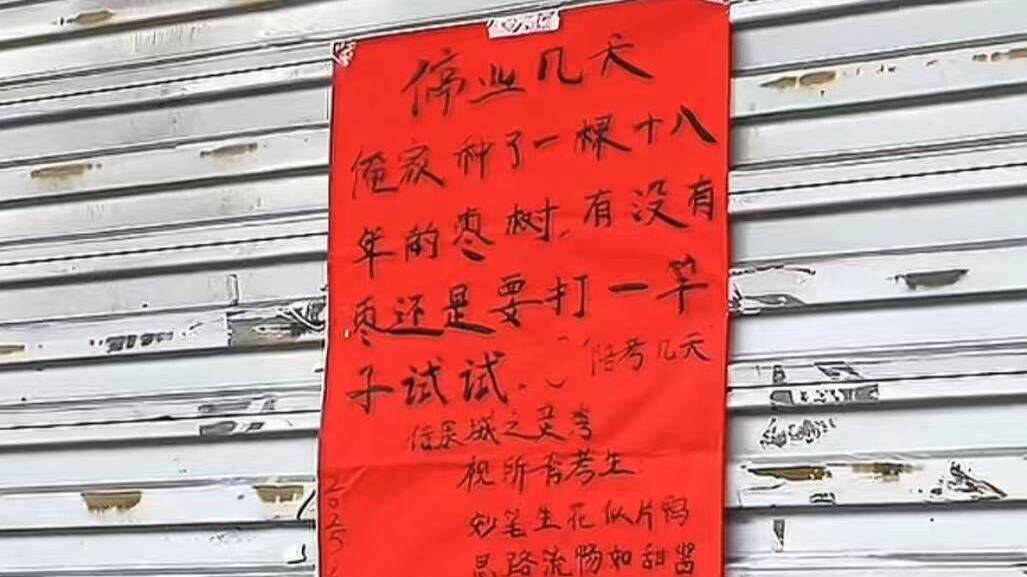 停业几天
俺家种了一棵十八
年的枣树,有没有
枣还是要打一竿
子试试..
陪考几天
视所有考生
妙笔生花似片鸭
思路流畅如甜酱
2025